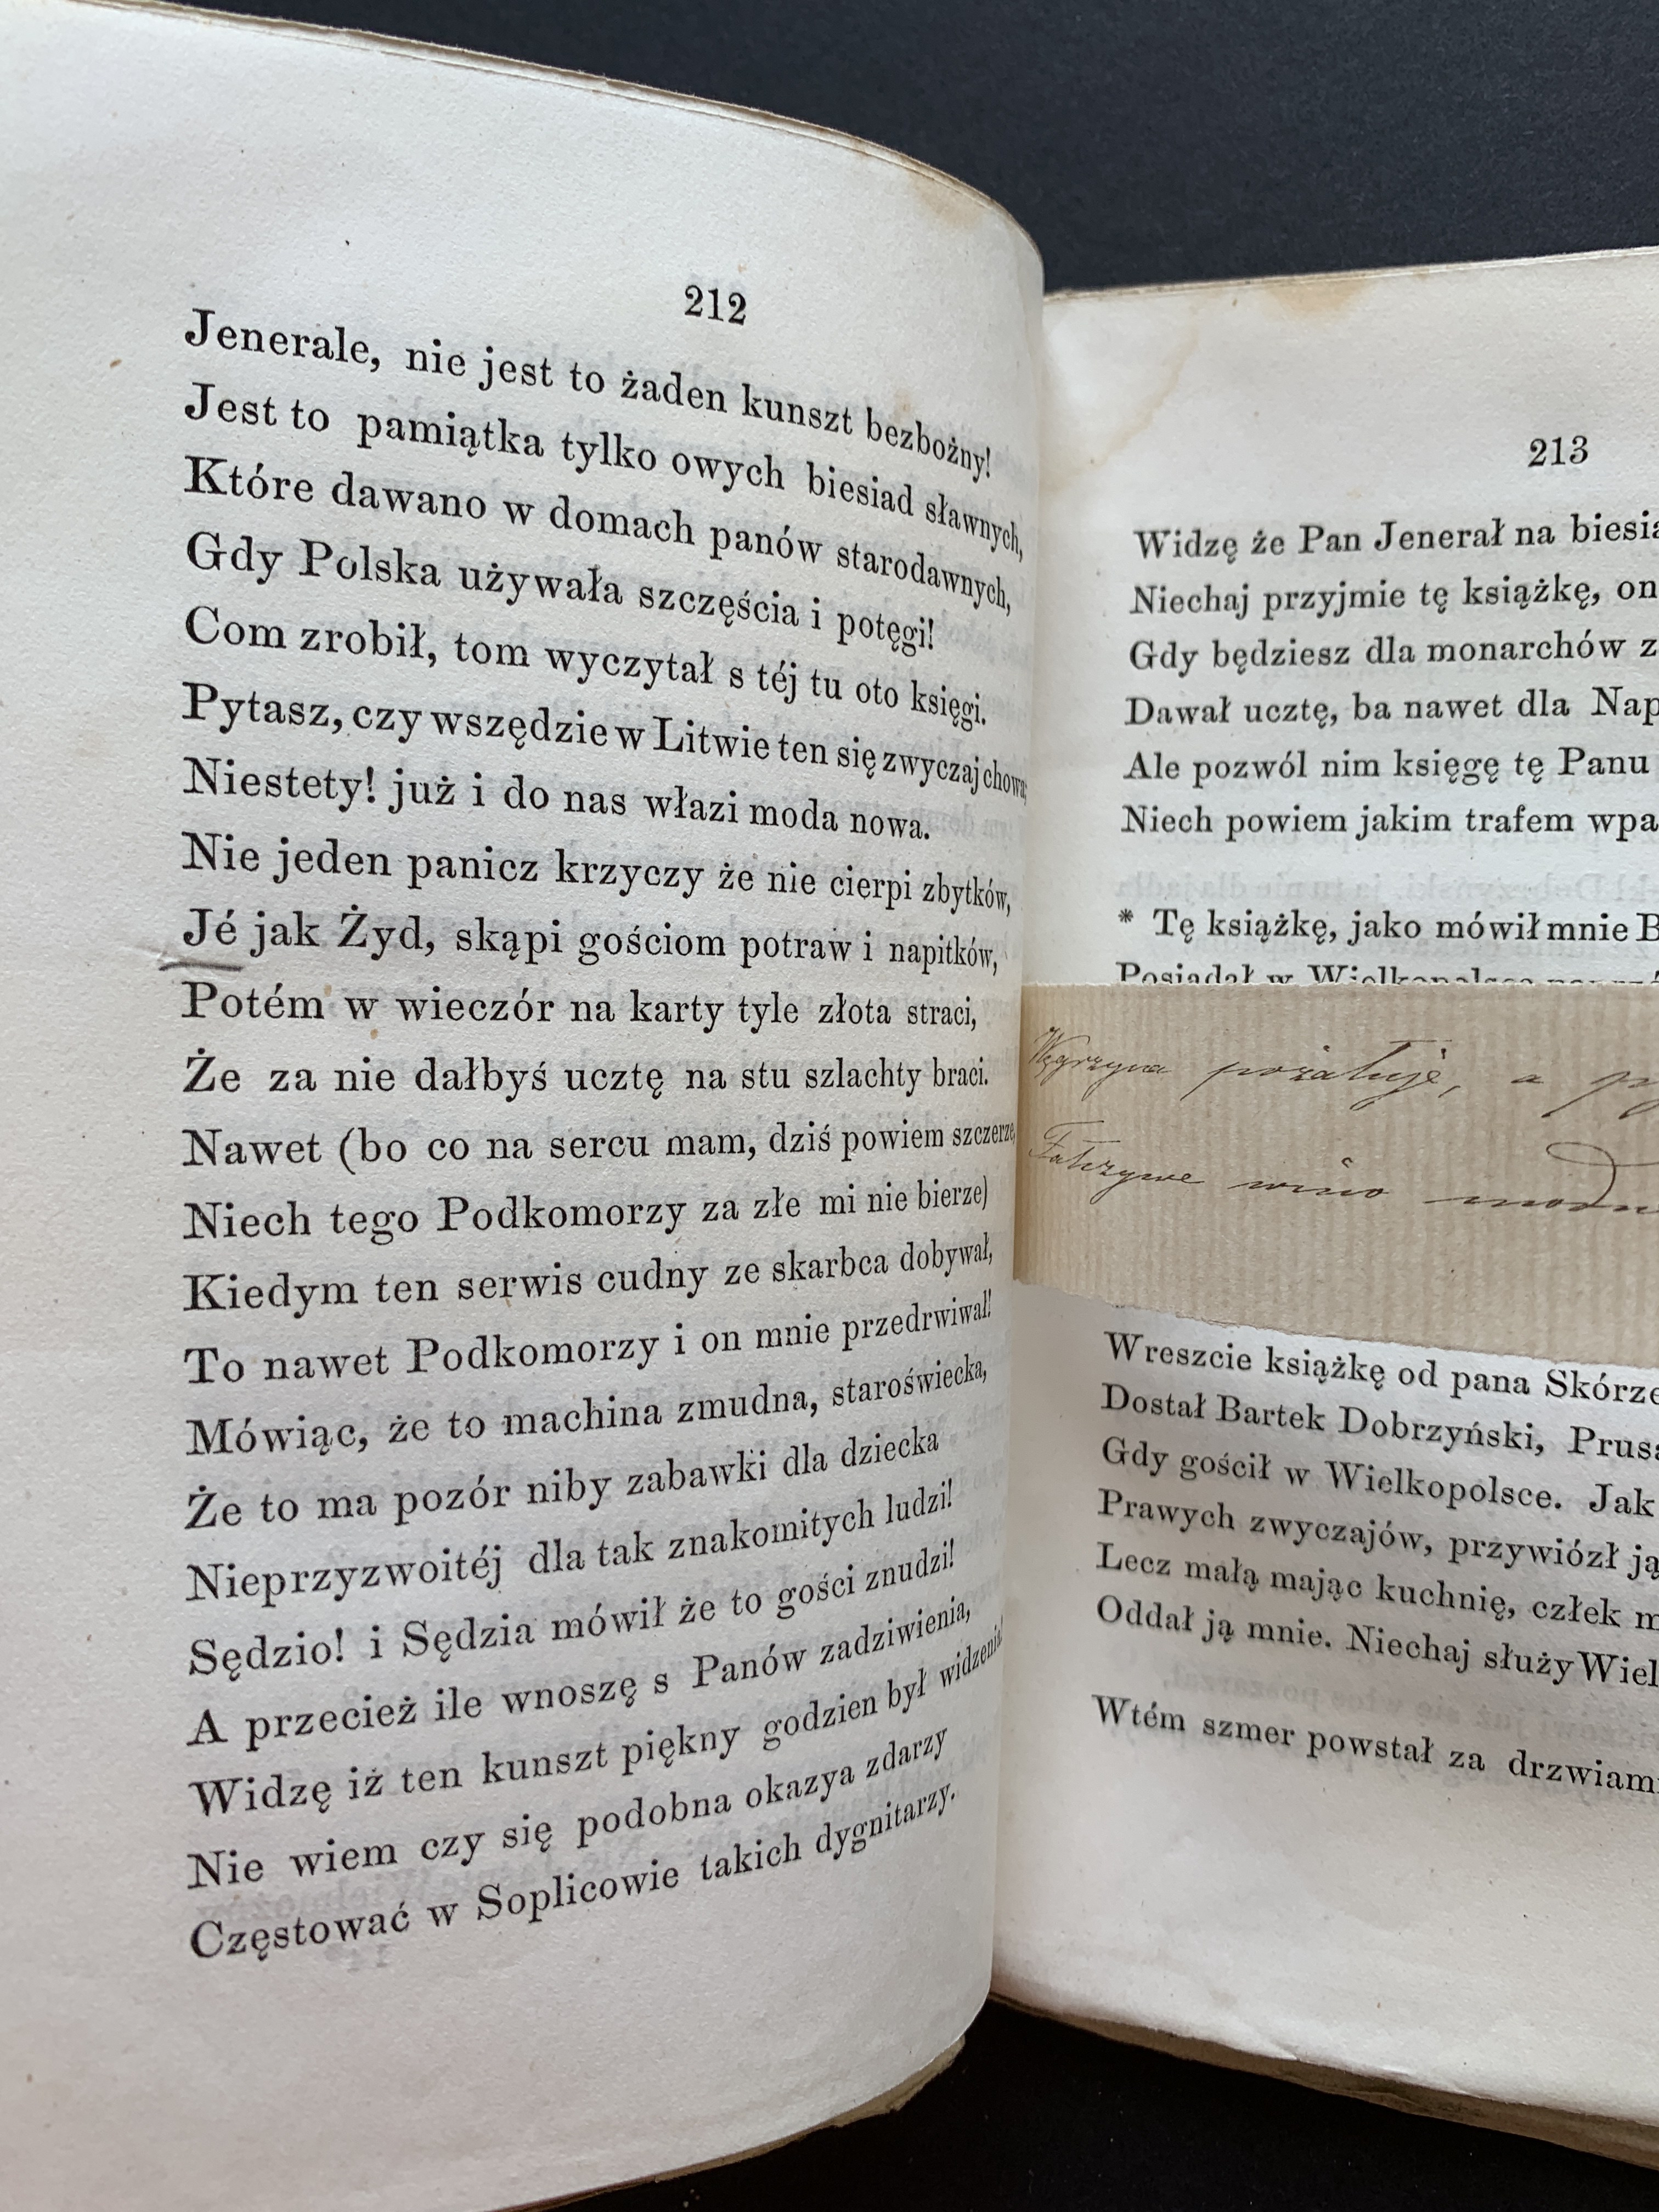 212
Jenerale, nie jest to żaden kunszt bezbożny!
Jest to pamiątka tylko owych biesiad sławnych,
Które dawano w domach panów starodawnych,
Gdy Polska używała szczęścia i potęgi!
Com zrobił, tom wyczytał s téj tu oto księgi.
Pytasz, czy wszędzie w Litwie ten się zwyczaj chowa;
Niestety! już i do nas włazi moda nowa.
Nie jeden panicz krzyczy że nie cierpi zbytków,
Jé jak Żyd, skąpi gościom potraw i napitków,
Potém w wieczór na karty tyle złota straci,
Że za nie dałbyś ucztę na stu szlachty braci.
Nawet (bo co na sercu mam, dziś powiem szczerze,
Niech tego Podkomorzy za złe mi nie bierze)
Kiedym ten serwis cudny ze skarbca dobywał,
To nawet Podkomorzy i on mnie przedrwiwał!
Mówiąc, że to machina zmudna, staroświecka,
Że to ma pozór niby zabawki dla dziecka
Nieprzyzwoitéj dla tak znakomitych ludzi!
Sędzio! i Sędzia mówił że to gości znudzi!
A przecież ile wnoszę s Panów zadziwienia,
Widzę iż ten kunszt piękny godzien był widzenia!
Nie wiem czy się podobna okazya zdarzy
Częstować w Soplicowie takich dygnitarzy.
213
Widzę że Pan Jenerał na biesia
Niechaj przyjmie tę książkę, on
Gdy będziesz dla monarchów z
Dawał ucztę, ba nawet dla Nap
Ale pozwól nim księgę tę Panu
Niech powiem jakim trafem wpa
* Tę książkę, jako mówił mnie B
Posiadał w Wielkopolsce
Węgrzyna pożałuje, a
Fałszywe wino modn
Wreszcie książkę od pana Skórze
Dostał Bartek Dobrzyński, Prusa
Gdy gościł w Wielkopolsce. Jak
Prawych zwyczajów, przywiózł ją
Lecz małą mając kuchnię, człek m
Oddał ją mnie. Niechaj służy Wiel
Wtém szmer powstał za drzwiami